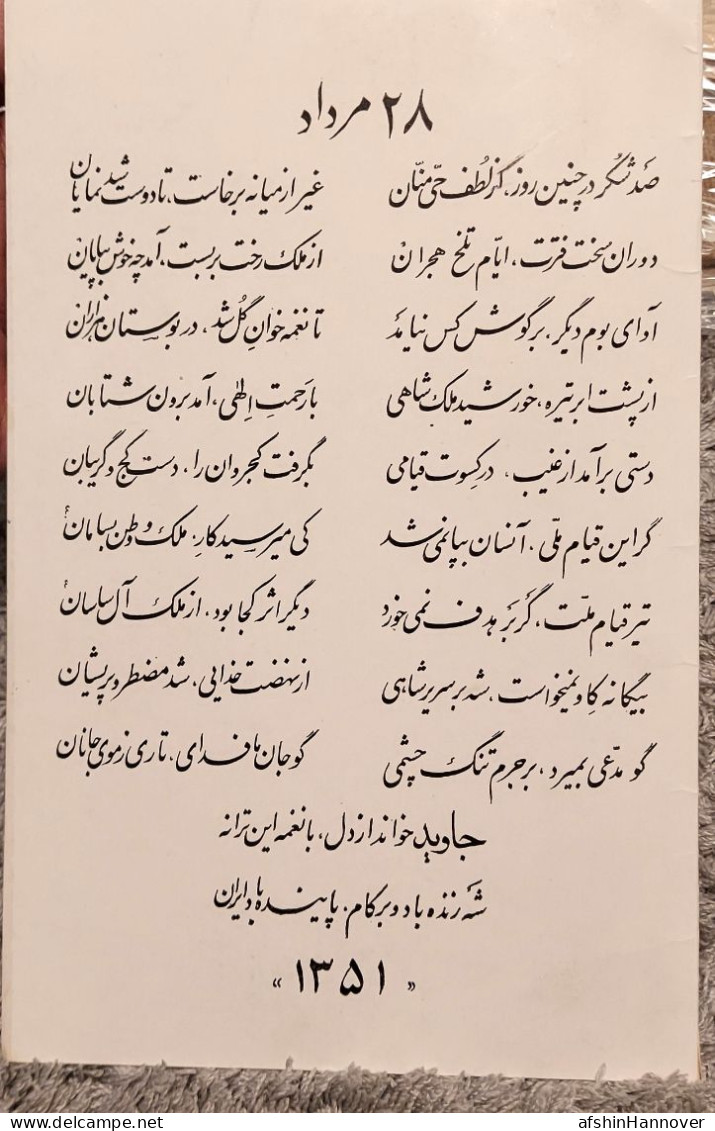 ۲۸ مرداد
صد شکر در چنین روز، کز لطف حیّ منّان غیر از میانه برخاست، تا دوست شد نمایان
دوران سخت فترت، ایّام تلخ هجران از ملک رخت بربست، آمد چه خوش بپایان
آوای بوم دیگر، بر گوش کس نیامد تا نغمه خوان گُل شد، در بوستان هزاران
از پشت ابر تیره، خورشید ملک شاهی با رحمتِ اِلهی، آمد برون شتابان
دستی برآمد از غیب، در کسوت قیامی بگرفت کجروان را، دست کج و گریبان
گر این قیام ملّی، آنسان بپا نمی شد کی میرسید کارِ، ملک و وطن بسامان؟
تیر قیام ملّت، گر بر هدف نمی خورد دیگر اثر کجا بود، از ملک آل ساسان؟
بیگانه کاو نمیخواست، شه بر سریر شاهی از نهضت خدایی، شد مضطر و پریشان
گو مدّعی بمیرد، بر جرم تنگ چشمی گو جان ما فدای، تاری ز موی جانان
جاوید خواند از دل، با نغمه این ترانه
شه زنده باد و برکام، پاینده باد ایران
«۱۳۵۱»
afshinHannover